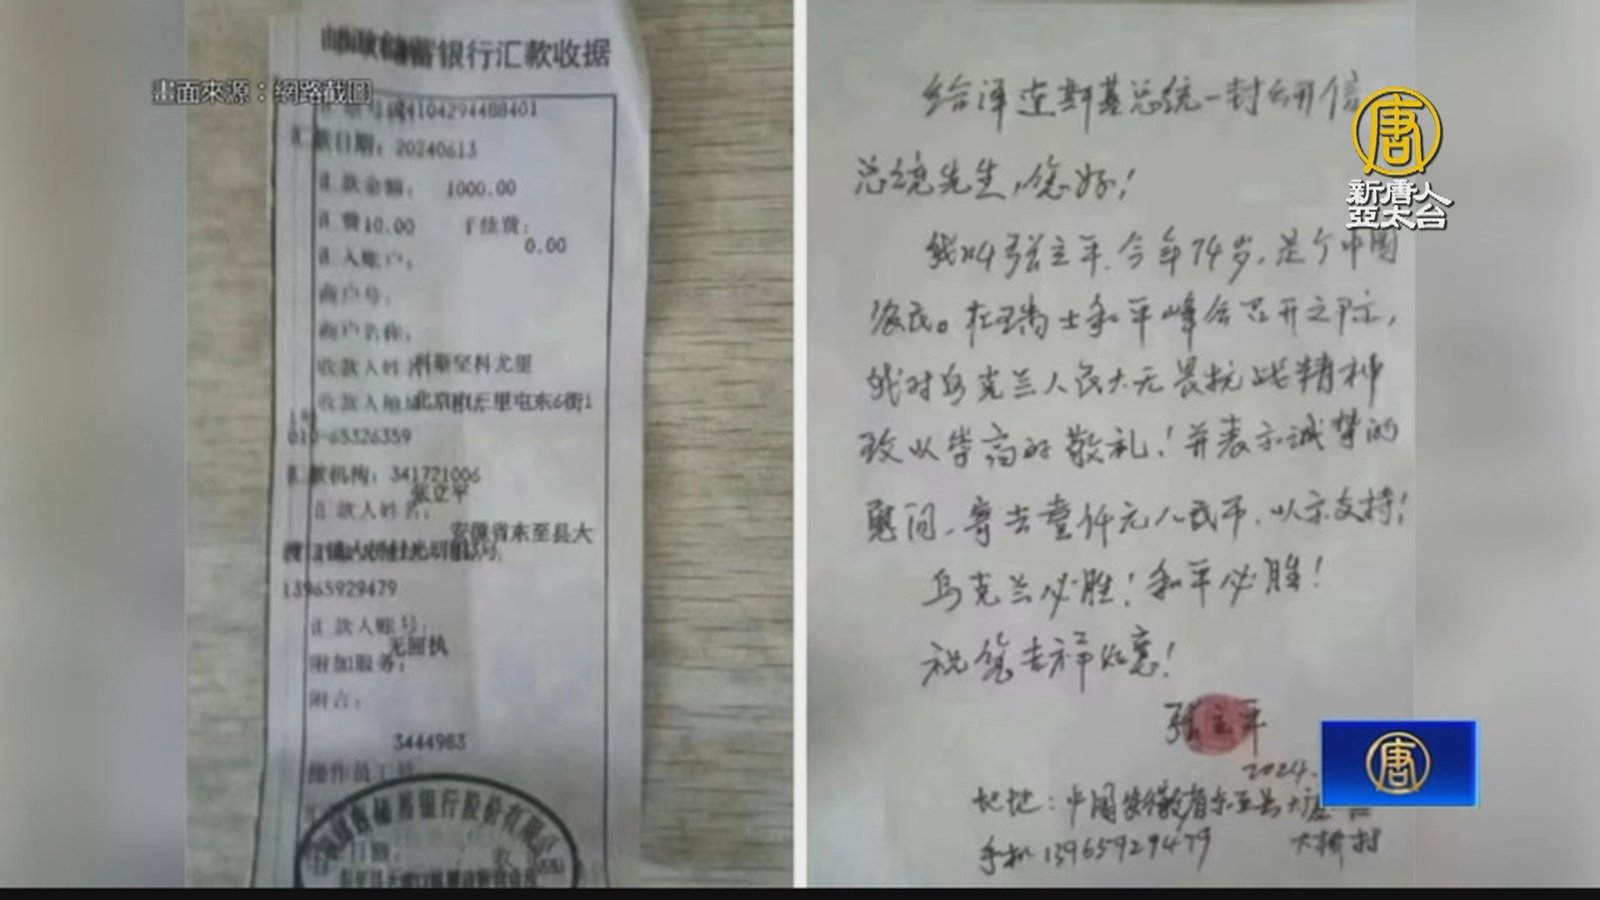 畫面來源：網路截圖
邮政储蓄银行汇款收据
4104294488401
汇款日期：20240613
汇款金额：1000.00
汇费10.00 手续费：
0.00
汇入账户：
商户号：
商户名称：
收款人姓名
科尤里
收款人地址
北京市三里屯东6街1
010-65326359
汇款机构：341721006
张立平
汇款人姓名：
安徽省东至县大
13965929479
汇款人账号：
无回执
附加服务：
附言：
3444983
操作员工号
给泽连斯基总统一封公开信
总统先生，您好！
我叫张立平，今年74岁，是个中国
农民。在瑞士和平峰会召开之际，
我对乌克兰人民大无畏抗战精神
致以崇高的敬礼！并表示诚挚的
慰问，寄去壹仟元人民币，以示支持！
乌克兰必胜！和平必胜！
祝您吉祥如意！
张立平
2024.
地址：中国安徽省东至县大渡口
大桥村
手机 13965929479
唐
新唐人
亞太台
唐